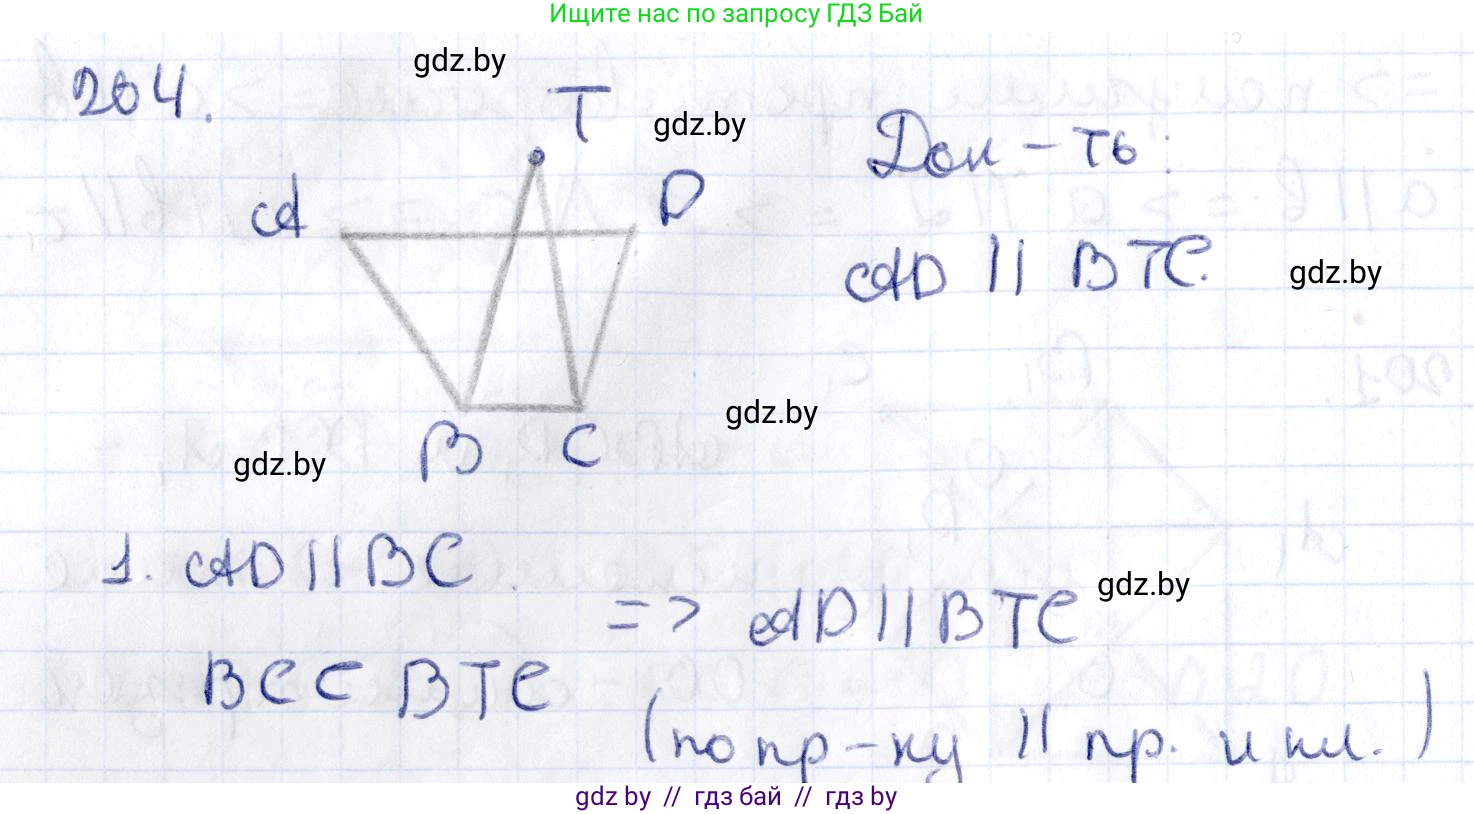 Ищите нас по запросу ГДЗ Бай
204.
gdz.by
T
gdz.by
A
D
Док-ть:
AD || BTC.
gdz.by
gdz.by
B C
gdz.by
1. AD || BC
gdz.by
=> AD || BTC
BC ⊂ BTC
(по пр-ку || пр. и пл.)
gdz by // гдз бай // гдз by